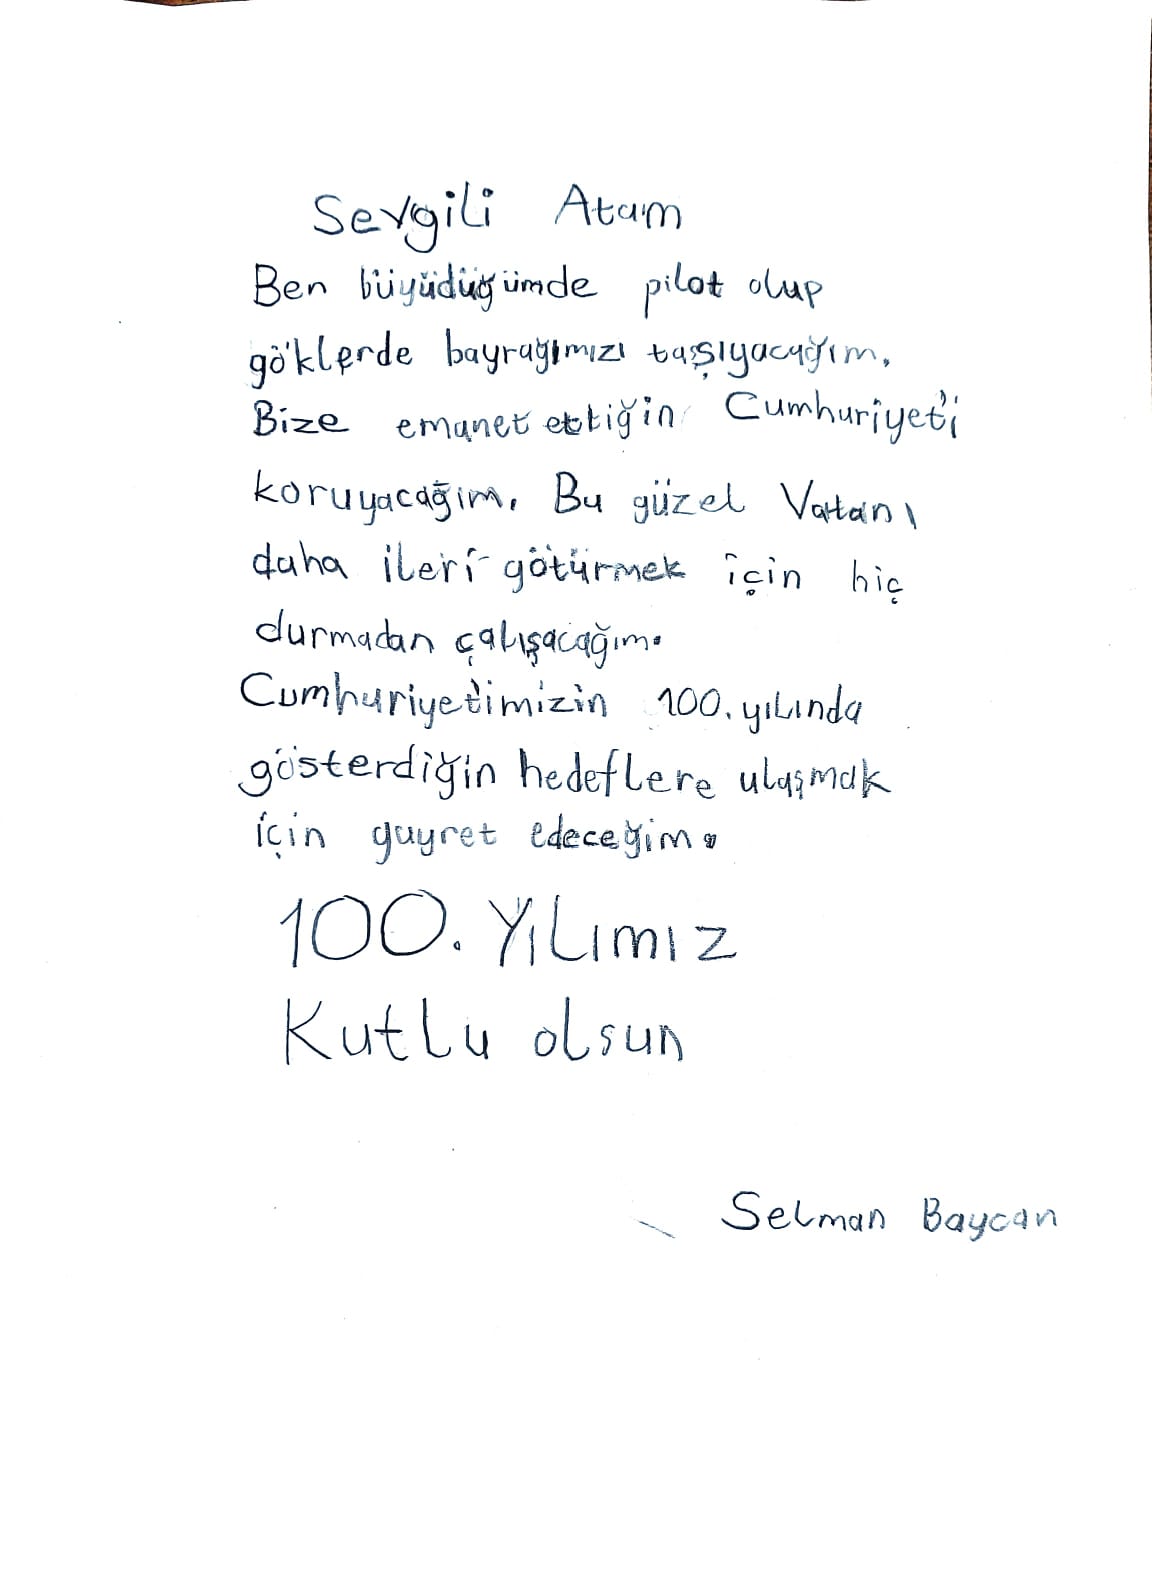 Sevgili Atam
Ben büyüdüğümde pilot olup
göklerde bayrağımızı taşıyacağım.
Bize emanet ettiğin Cumhuriyet'i
koruyacağım. Bu güzel Vatanı
daha ileri götürmek için hiç
durmadan çalışacağım.
Cumhuriyetimizin 100. yılında
gösterdiğin hedeflere ulaşmak
için gayret edeceğim.
100. Yılımız
Kutlu olsun
Selman Baycan